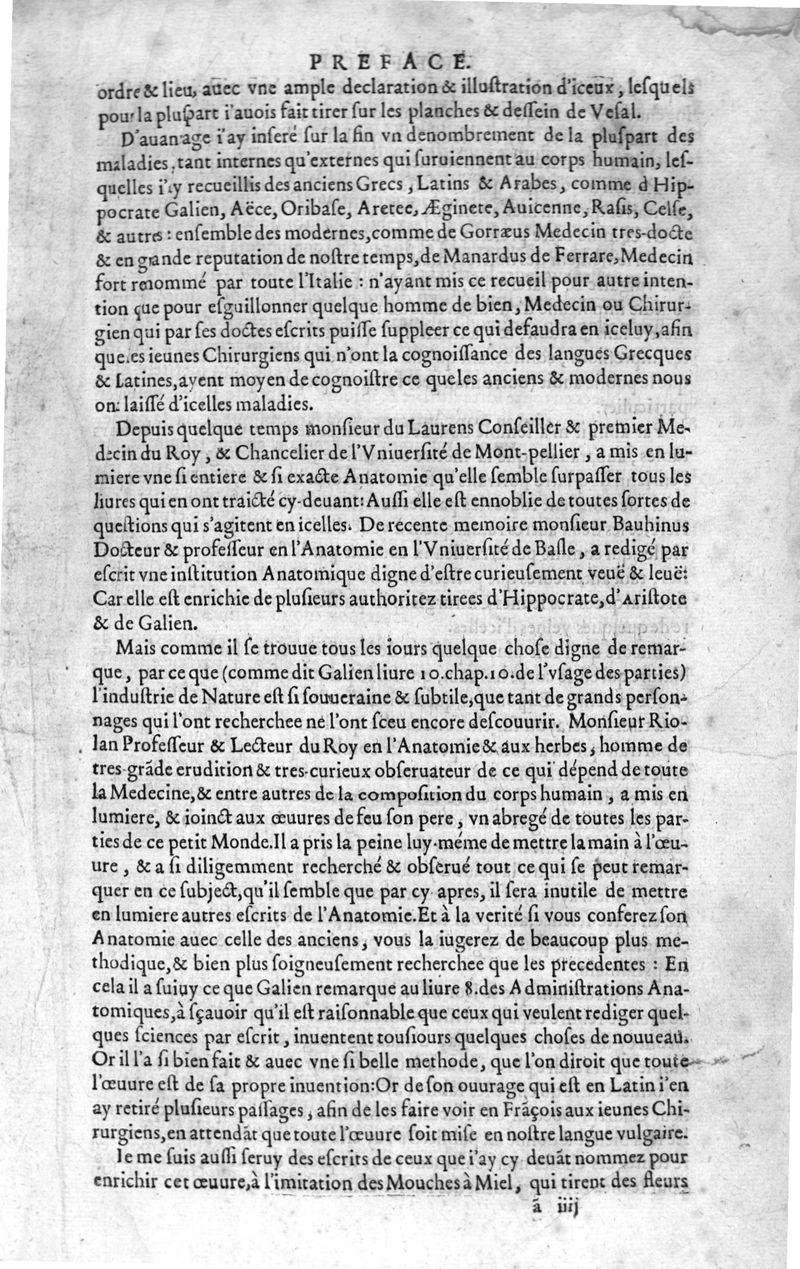 PREFACE.
ordre & lieu, auec vne ample declaration & illuſtration d'iceux, leſquels
pour la pluſpart i'auois fait tirer ſur les planches & deſſein de Veſal.
D'auan age i'ay inſeré ſur la fin vn denombrement de la pluſpart des
maladies, tant internes qu'externes qui ſuruiennent au corps humain, leſ-
quelles i'ay recueillis des anciens Grecs, Latins & Arabes, comme d Hip-
pocrate Galien, Aëce, Oribaſe, Aretee, Æginete, Auicenne, Raſis, Celſe,
& autres: enſemble des modernes, comme de Gorræus Medecin tres-docte
& en grande reputation de noſtre temps, de Manardus de Ferrare, Medecin
fort renommé par toute l'Italie: n'ayant mis ce recueil pour autre inten-
tion que pour eſguillonner quelque homme de bien, Medecin ou Chirur-
gien qui par ſes doctes eſcrits puiſſe ſuppleer ce qui defaudra en iceluy, afin
que les ieunes Chirurgiens qui n'ont la cognoiſſance des langues Grecques
& Latines, ayent moyen de cognoiſtre ce que les anciens & modernes nous
ont laiſſé d'icelles maladies.
Depuis quelque temps monſieur du Laurens Conſeiller & premier Me-
decin du Roy, & Chancelier de l'Vniuerſité de Mont-pellier, a mis en lu-
miere vne ſi entiere & ſi exacte Anatomie qu'elle ſemble ſurpaſſer tous les
liures qui en ont traicté cy-deuant: Auſſi elle eſt ennoblie de toutes ſortes de
queſtions qui s'agitent en icelles. De recente memoire monſieur Bauhinus
Docteur & profeſſeur en l'Anatomie en l'Vniuerſité de Baſle, a redigé par
eſcrit vne inſtitution Anatomique digne d'eſtre curieuſement veuë & leuë:
Car elle eſt enrichie de pluſieurs authoritez tirees d'Hippocrate, d'Ariſtote
& de Galien.
Mais comme il ſe trouue tous les iours quelque choſe digne de remar-
que, par ce que (comme dit Galien liure 10. chap. 10. de l'vſage des parties)
l'induſtrie de Nature eſt ſi ſouueraine & ſubtile, que tant de grands perſon-
nages qui l'ont recherchee ne l'ont ſceu encore deſcouurir. Monſieur Rio-
lan Profeſſeur & Lecteur du Roy en l'Anatomie & aux herbes, homme de
tres-grãde erudition & tres-curieux obſeruateur de ce qui dépend de toute
la Medecine, & entre autres de la compoſition du corps humain, a mis en
lumiere, & ioinct aux œuures de feu ſon pere, vn abregé de toutes les par-
ties de ce petit Monde. Il a pris la peine luy-méme de mettre la main à l'œu-
ure, & a ſi diligemment recherché & obſerué tout ce qui ſe peut remar-
quer en ce ſubject, qu'il ſemble que par cy apres, il ſera inutile de mettre
en lumiere autres eſcrits de l'Anatomie. Et à la verité ſi vous conferez ſon
Anatomie auec celle des anciens, vous la iugerez de beaucoup plus me-
thodique, & bien plus ſoigneuſement recherchee que les precedentes: En
cela il a ſuiuy ce que Galien remarque au liure 8. des Adminiſtrations Ana-
tomiques, à ſçauoir qu'il eſt raiſonnable que ceux qui veulent rediger quel-
ques ſciences par eſcrit, inuentent touſiours quelques choſes de nouueau.
Or il l'a ſi bien fait & auec vne ſi belle methode, que l'on diroit que toute
l'œuure eſt de ſa propre inuention: Or de ſon ouurage qui eſt en Latin i'en
ay retiré pluſieurs paſſages, afin de les faire voir en Frãçois aux ieunes Chi-
rurgiens, en attendãt que toute l'œuure ſoit miſe en noſtre langue vulgaire.
Ie me ſuis auſſi ſeruy des eſcrits de ceux que i'ay cy deuãt nommez pour
enrichir cet œuure, à l'imitation des Mouches à Miel, qui tirent des fleurs
ã iiij